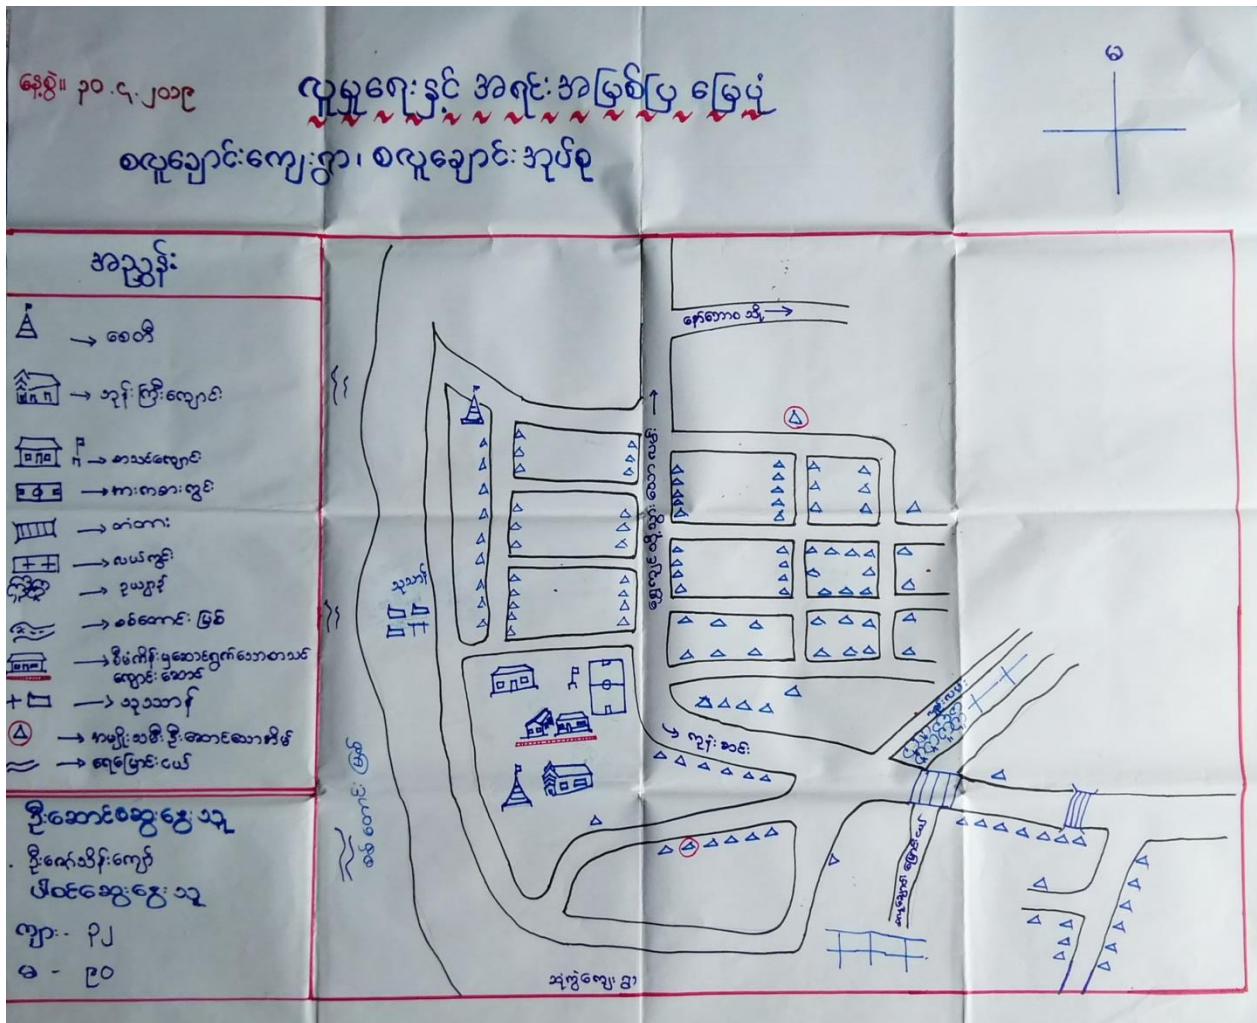 နေ့စွဲ။ ၃၀.၄.၂၀၁၉
လူမှုရေးနှင့် အရင်းအမြစ်ပြ မြေပုံ
စလူချောင်းကျေးရွာ၊ စလူချောင်းအုပ်စု
မ
အညွှန်း
→ စေတီ
→ ဘုန်းကြီးကျောင်း
→ စာသင်ကျောင်း
→ ကစားကွင်း
→ တံတား
→ လယ်ကွင်း
→ ဥယျာဉ်
→ စစ်တောင်းမြစ်
→ စီမံကိန်းမှဆောင်ရွက်သောစာသင်
ကျောင်းဆောင်
→ သုဿာန်
→ အမျိုးသမီးဦးဆောင်သောအိမ်
→ ရေမြောင်းငယ်
ဦးဆောင်ဆွေးနွေးသူ
ဦးဇော်သိန်းကျော်
ပါဝင်ဆွေးနွေးသူ
ကျား - ၃၂
မ - ၉၀
သို့ →
သုသာန်
စစ်တောင်းမြစ်
→ ကုန်းဆင်း
ဆုံကွဲကျေးရွာ